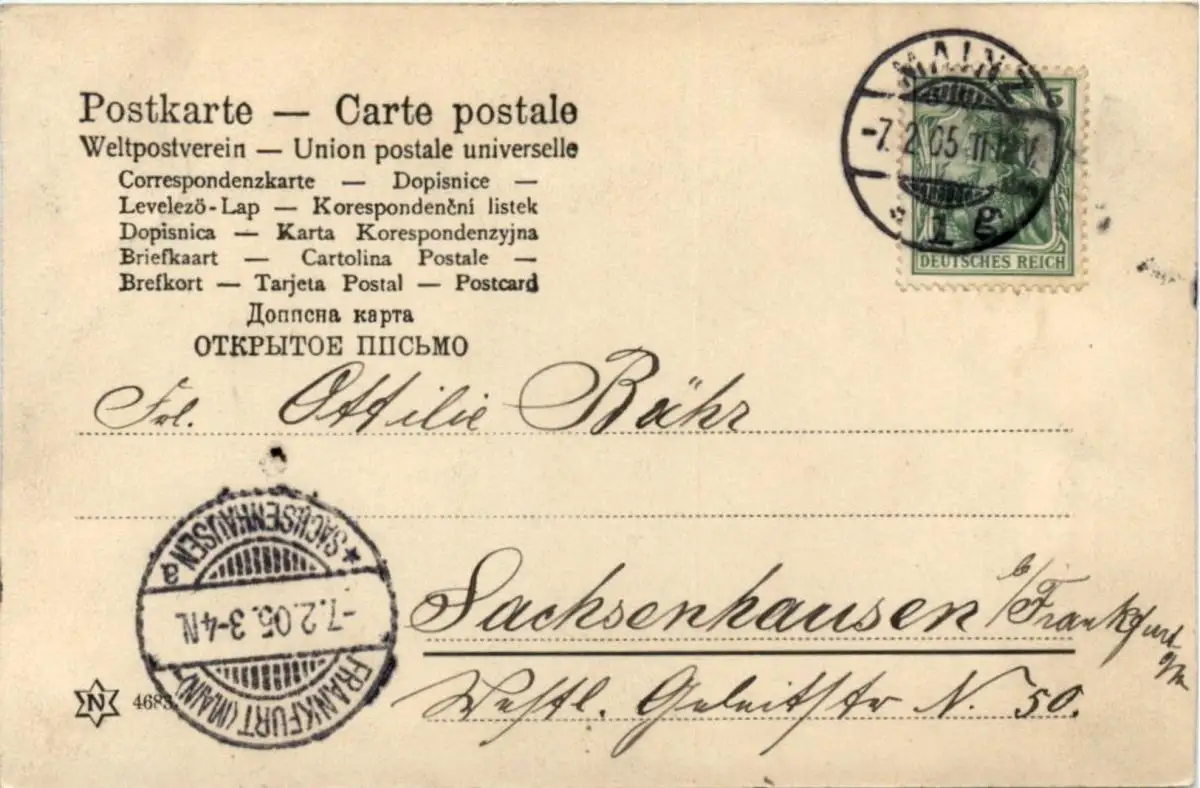 Postkarte — Carte postale
Weltpostverein — Union postale universelle
Correspondenzkarte — Dopisnice —
Levelező-Lap — Korespondenční listek
Dopisnica — Karta Korespondenzyjna
Briefkaart — Cartolina Postale —
Brefkort — Tarjeta Postal — Postcard
Дописна карта
ОТКРЫТОЕ ПИСЬМО
MAINZ
-7.2.05. 11-12V.
* 1 g
5
DEUTSCHES REICH
Frl. Ottilie Bähr
* SACHSENHAUSEN a
-7.2.05. 3-4N.
FRANKFURT (MAIN)
Sachsenhausen b/Frankfurt a/M
Westl. Geleitstr N. 50.
N 4683